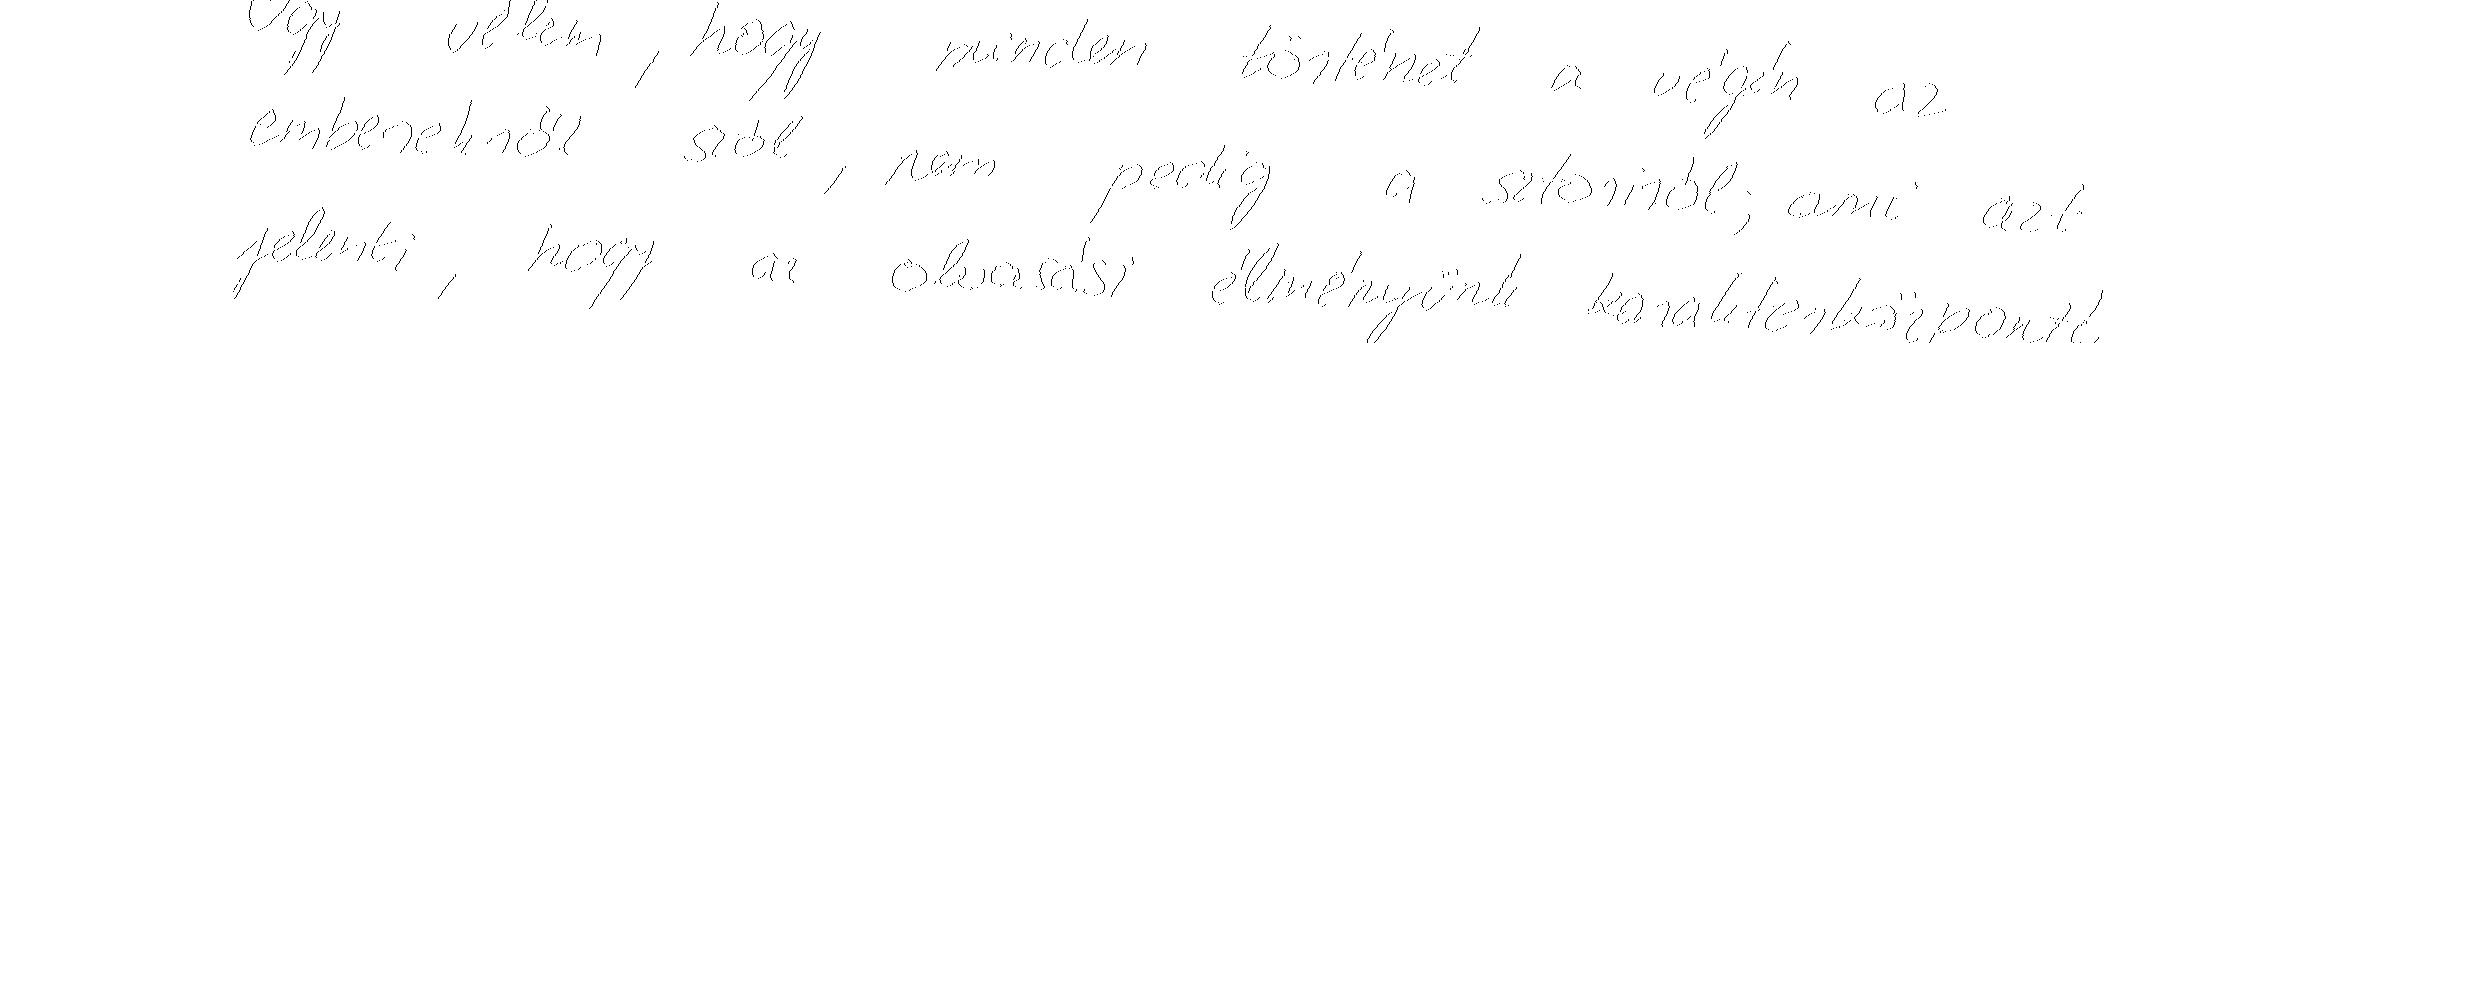 Úgy vélem, hogy minden történet a végén az
emberekről szól, nem pedig a sztoriról; ami azt
jelenti, hogy az olvasási élményünk karakterközpontú